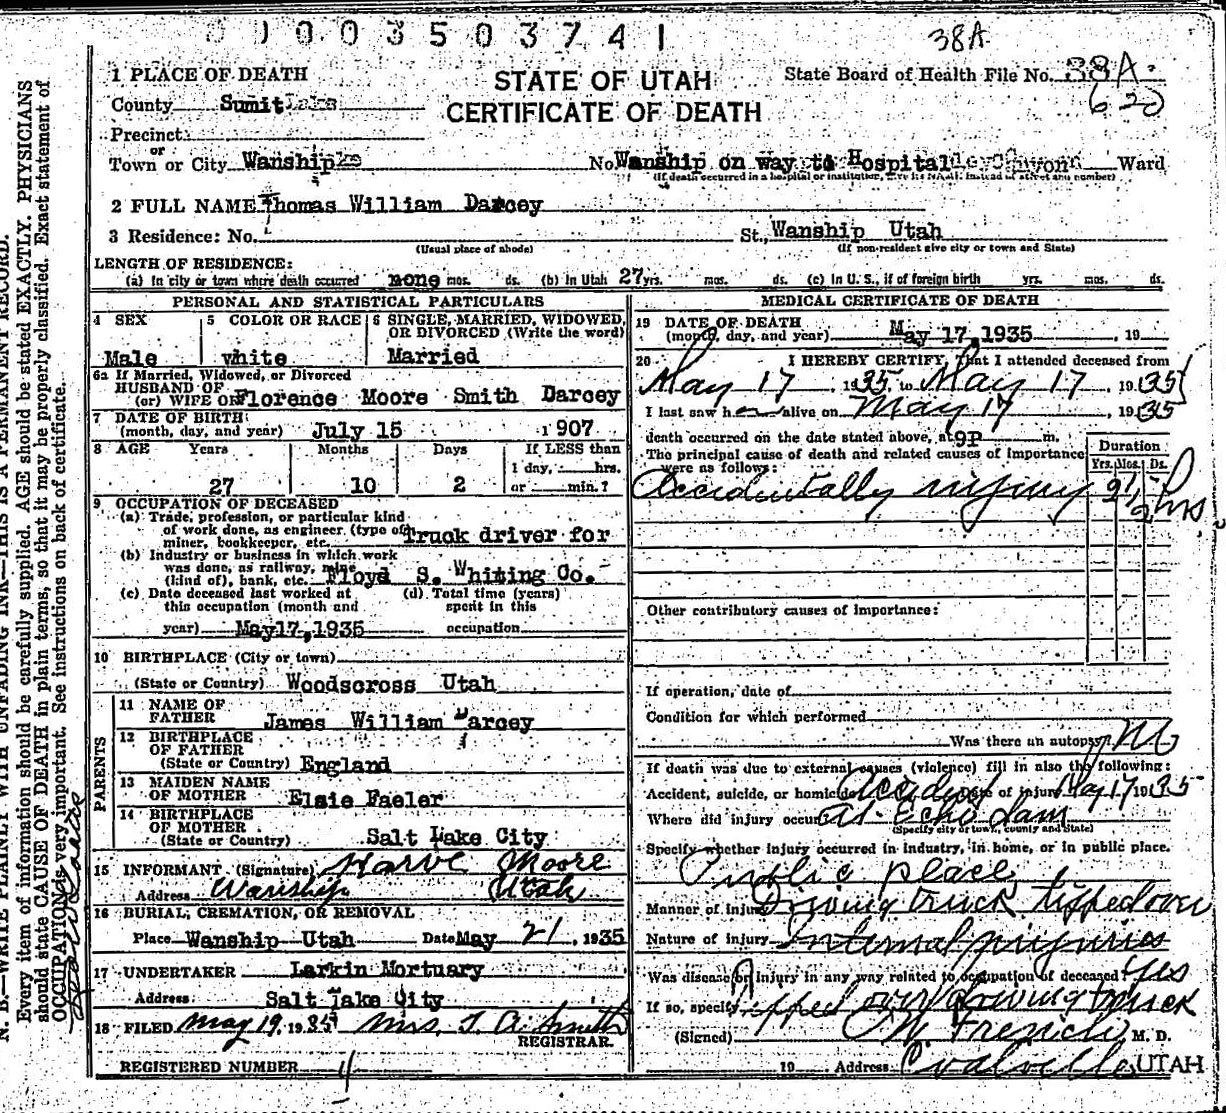 0 1 0 0 3 5 0 3 7 4 1
38A
1 PLACE OF DEATH
STATE OF UTAH
CERTIFICATE OF DEATH
State Board of Health File No. 38A
620
County Sumit
Precinct
or
Town or City Wanship No. Wanship on way to Hospital Ward
(If death occurred in a hospital or institution, give its NAME instead of street and number)
2 FULL NAME Thomas William Darcey
3 Residence: No. St., Wanship Utah
(Usual place of abode) (If non-resident give city or town and State)
LENGTH OF RESIDENCE:
(a) In city or town where death occurred none mos. ds. (b) In Utah 27 yrs. mos. ds. (c) In U. S., if of foreign birth yrs. mos. ds.
PERSONAL AND STATISTICAL PARTICULARS
4 SEX 5 COLOR OR RACE 6 SINGLE, MARRIED, WIDOWED, OR DIVORCED (Write the word)
Male white Married
6a If Married, Widowed, or Divorced
HUSBAND OF
(or) WIFE OF Florence Moore Smith Darcey
7 DATE OF BIRTH:
(month, day, and year) July 15 1907
8 AGE Years Months Days If LESS than
1 day, hrs.
27 10 2 or min.?
9 OCCUPATION OF DECEASED
(a) Trade, profession, or particular kind
of work done, as engineer (type of)
miner, bookkeeper, etc. Truck driver for
(b) Industry or business in which work
was done, as railway, mine
(kind of), bank, etc. Floyd S. Whiting Co.
(c) Date deceased last worked at (d) Total time (years)
this occupation (month and spent in this
year) May17,1935 occupation
10 BIRTHPLACE (City or town)
(State or Country) Woodscross Utah
PARENTS
11 NAME OF
FATHER James William Darcey
12 BIRTHPLACE
OF FATHER
(State or Country) England
13 MAIDEN NAME
OF MOTHER Elsie Faeler
14 BIRTHPLACE
OF MOTHER
(State or Country) Salt Lake City
15 INFORMANT (Signature) Harve Moore
Address Wanship Utah
16 BURIAL, CREMATION, OR REMOVAL
Place Wanship Utah Date May 21, 1935
17 UNDERTAKER Larkin Mortuary
Address Salt Lake City
18 FILED May 19, 1935 Mrs. T. A. Smith
REGISTRAR.
REGISTERED NUMBER 4
MEDICAL CERTIFICATE OF DEATH
19 DATE OF DEATH
(month, day, and year) May 17,1935, 19
20 I HEREBY CERTIFY, That I attended deceased from
May 17, 1935, to May 17, 1935
I last saw h alive on May 17, 1935
death occurred on the date stated above, at 9P m.
The principal cause of death and related causes of importance
were as follows:
Duration
Yrs. Mos. Ds.
Accidentally injury 2 1/2 hrs
Other contributory causes of importance:
If operation, date of
Condition for which performed
Was there an autopsy? No
If death was due to external causes (violence) fill in also the following:
Accident, suicide, or homicide Accident Date of injury May 17 1935
Where did injury occur At Echo Dam
(Specify city or town, county and State)
Specify whether injury occurred in industry, in home, or in public place.
Public place
Manner of injury Driving truck tipped over
Nature of injury Internal injuries
Was disease or injury in any way related to occupation of deceased? Yes
If so, specify Tipped over driving truck
(Signed) French M. D.
19 Address Coalville UTAH
N. B.—WRITE PLAINLY WITH UNFADING INK—THIS IS A PERMANENT RECORD.
Every item of information should be carefully supplied. AGE should be stated EXACTLY. PHYSICIANS
should state CAUSE OF DEATH in plain terms, so that it may be properly classified. Exact statement of
OCCUPATION is very important. See instructions on back of certificate.